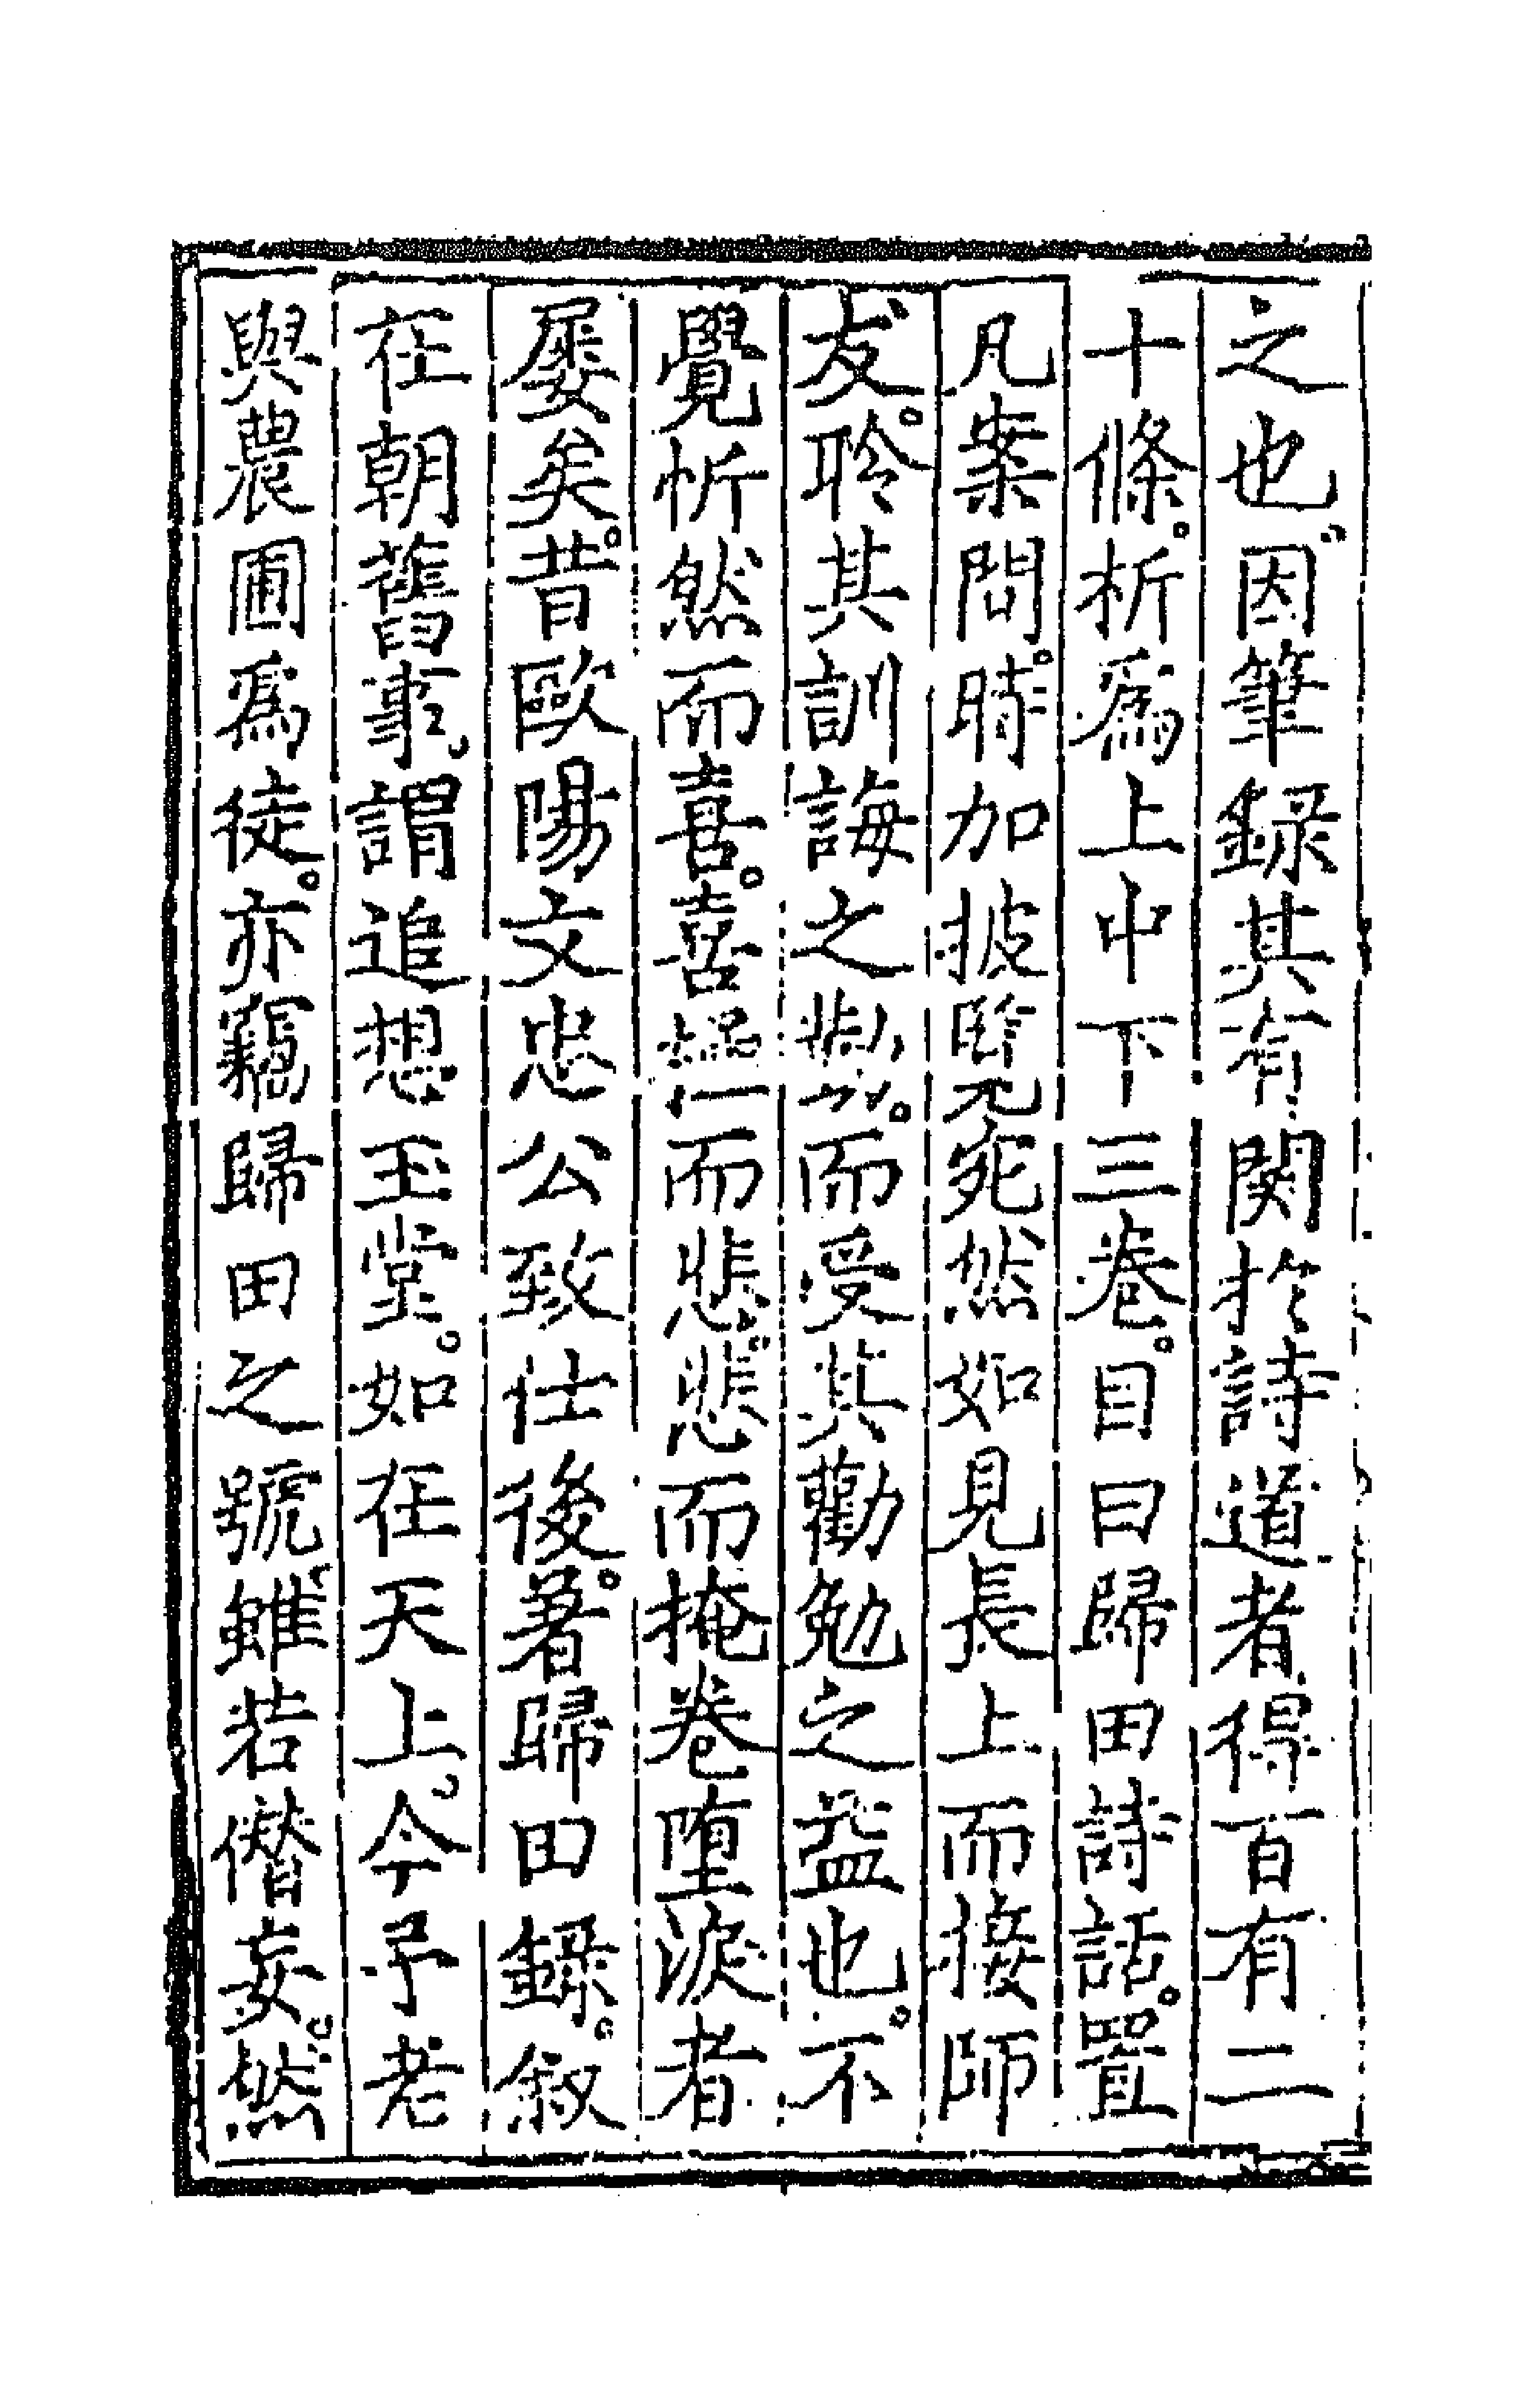 之也。因筆録其有関於詩道者得百有二
十條。析爲上中下三卷。目曰歸田詩話。置
凡案間。時加披覽宛然如見長上而接師
友。聆其訓誨之勤。而受其勸勉之益也。不
覺忻然而喜。喜極而悲。悲而掩卷堕淚者
屢矣。昔歐陽文忠公致仕後。著歸田録。叙
在朝舊事。謂追想玉堂。如在天上。今予老
與農圃爲徒。亦竊歸田之號。雖若僭妄。然